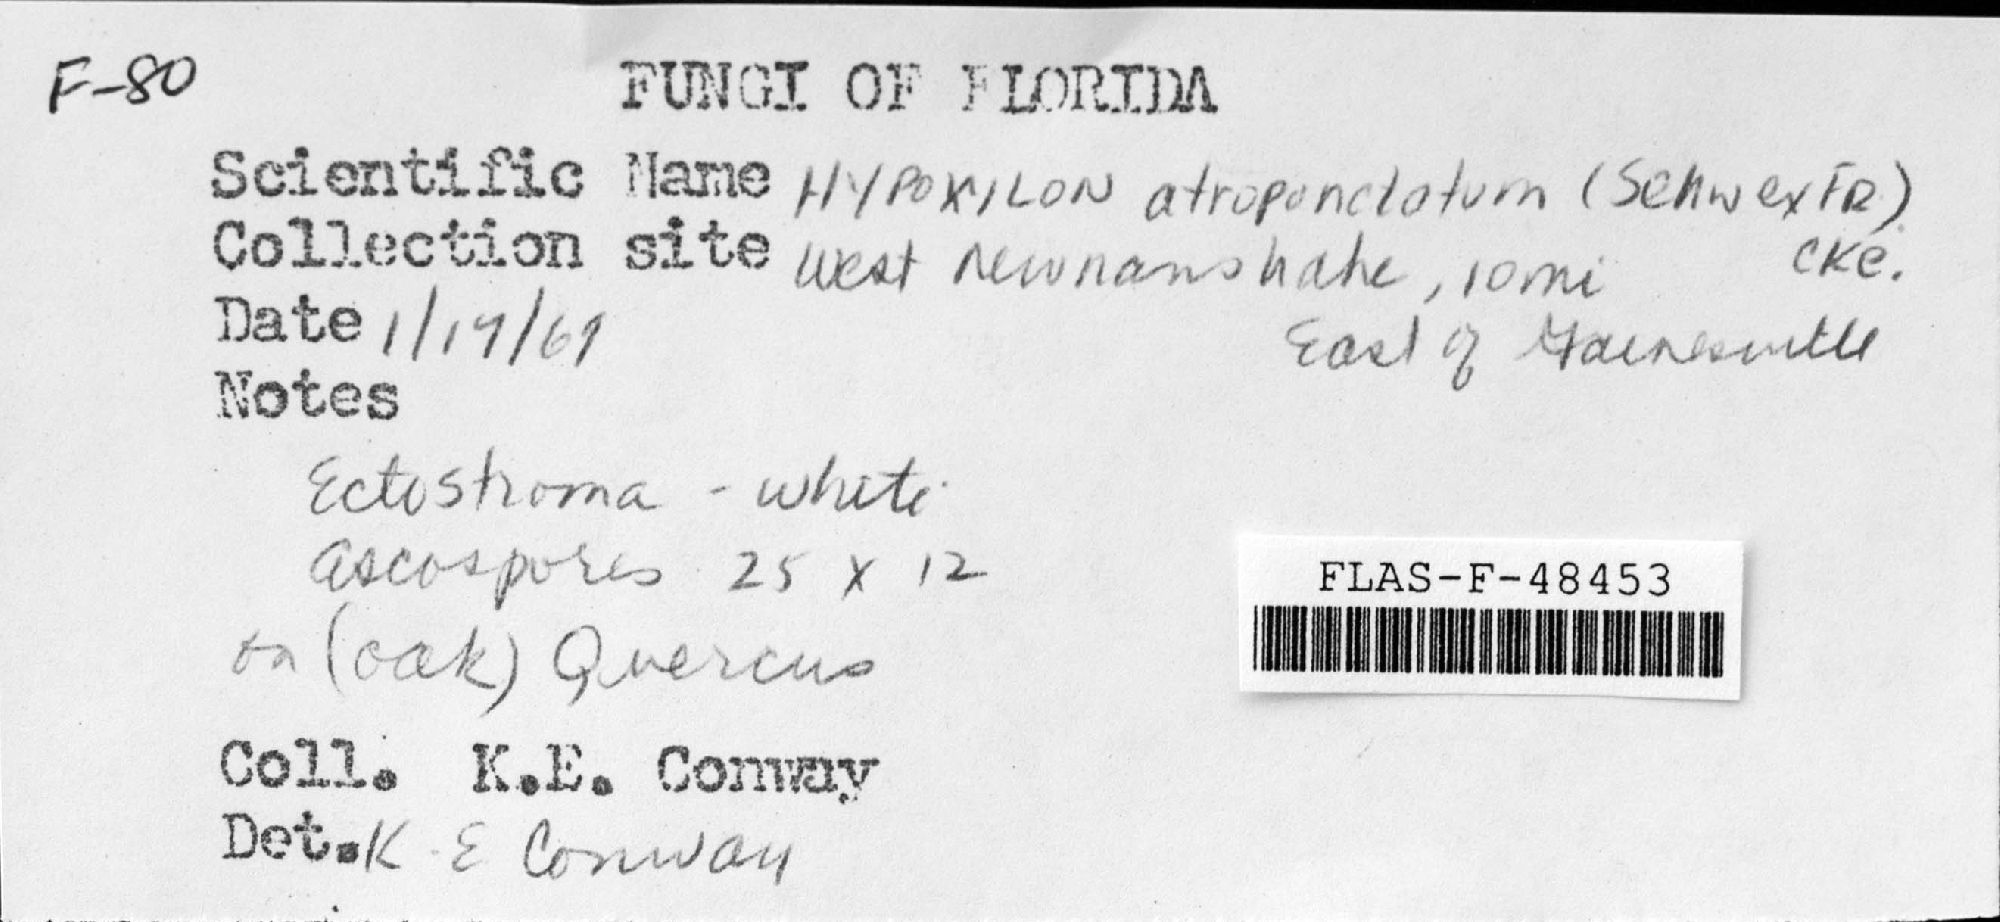 F-80
FUNGI OF FLORIDA
Scientific Name HYPOXYLON atropunctatum (Schw ex FR.)
Cke.
Collection site West Newnans Lake, 10 mi
East of Gainesville
Date 1/19/69
Notes
Ectostroma - white
ascospores 25 x 12
on (oak) Quercus
FLAS-F-48453
Coll. K.E. Conway
Det. K. E Conway